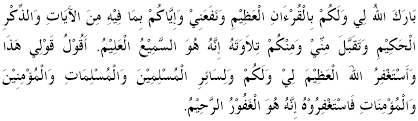 بَارَكَ اللهُ لِي وَلَكُمْ بِالْقُرْءَانِ الْعَظِيْمِ وَنَفَعَنِيْ وَإِيَّاكُمْ بِمَا فِيْهِ مِنَ الْآيَاتِ وَالذِّكْرِ
الْحَكِيْمِ وَتَقَبَّلَ مِنِّيْ وَمِنْكُمْ تِلَاوَتَهُ إِنَّهُ هُوَ السَّمِيْعُ الْعَلِيْمُ. أَقُوْلُ قَوْلِي هَذَا
وَأَسْتَغْفِرُ اللهَ الْعَظِيْمَ لِيْ وَلَكُمْ وَلِسَائِرِ الْمُسْلِمِيْنَ وَالْمُسْلِمَاتِ وَالْمُؤْمِنِيْنَ
وَالْمُؤْمِنَاتِ فَاسْتَغْفِرُوْهُ إِنَّهُ هُوَ الْغَفُوْرُ الرَّحِيْمُ.